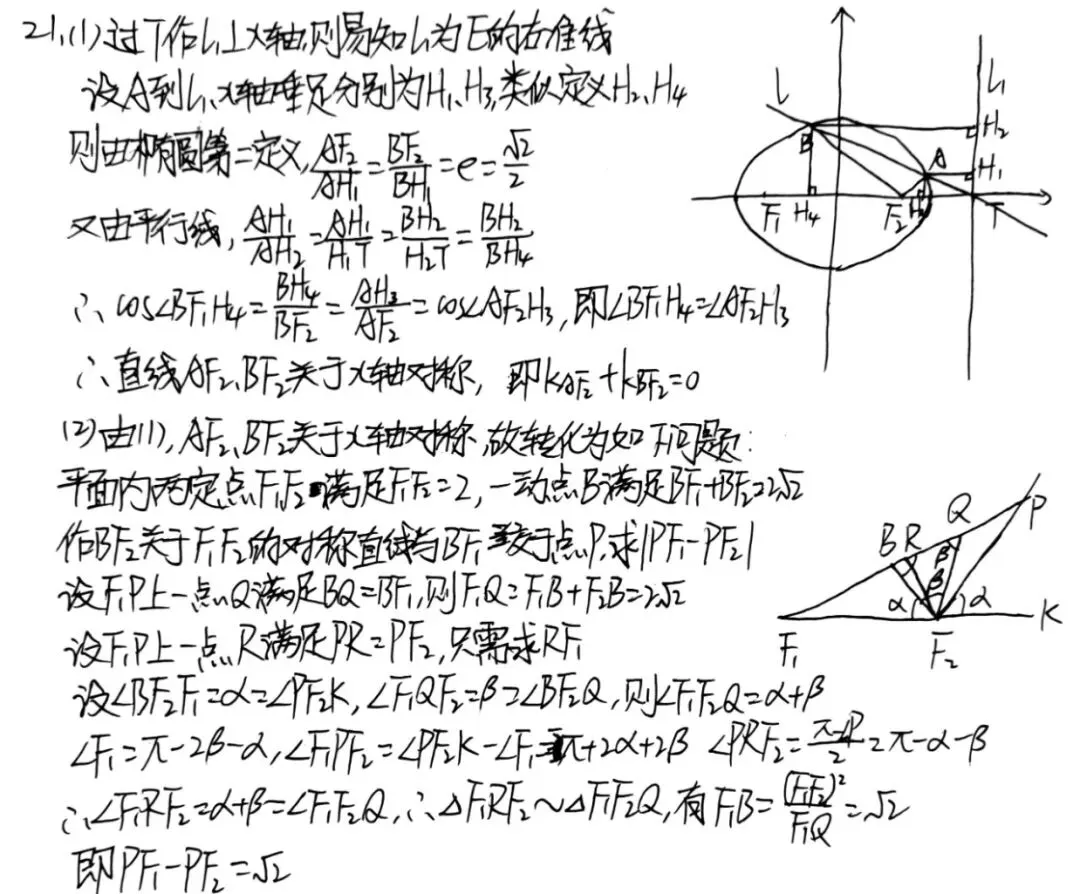 21.(1)过T作l₁⊥x轴,则易知l₁为E的右准线
设A到l₁、x轴垂足分别为H₁、H₃,类似定义H₂、H₄
则由椭圆第二定义, AF₂/AH₁ = BF₂/BH₁ = e = √2/2
又由平行线, AH₁/AH₂ = AH₁/H₁T = BH₂/H₂T = BH₂/BH₄
∴ cos∠BF₁H₄ = BH₄/BF₂ = AH₃/AF₂ = cos∠AF₂H₃, 即∠BF₁H₄=∠AF₂H₃
∴直线AF₂、BF₂关于x轴对称, 即kAF₂+kBF₂=0
(2)由(1), AF₂、BF₂关于x轴对称,故转化为如下问题:
平面内两定点F₁F₂满足F₁F₂=2, 一动点B满足BF₁+BF₂=2√2
作BF₂关于F₁F₂的对称直线与BF₁交于点P,求|PF₁-PF₂|
设F₁P上一点Q满足BQ=BF₁,则F₁Q=F₁B+F₂B=2√2
设F₁P上一点R满足PR=PF₂,只需求RF₁
设∠BF₂F₁=α=∠PF₂K, ∠F₁QF₂=β=∠BF₂Q, 则∠F₁F₂Q=α+β
∠F₁=π-2β-α, ∠F₁PF₂=∠PF₂K-∠F₁=π+2α+2β ∠PRF₂=(π-P)/2=π-α-β
∴∠F₁RF₂=α+β=∠F₁F₂Q, ∴△F₁RF₂∼△F₁F₂Q, 有F₁B=(F₁F₂)²/F₁Q=√2
即PF₁-PF₂=√2
l
l₁
B
H₂
A
H₁
F₁
H₄
F₂
T
Q
P
B
R
β
β
α
α
F₁
F₂
K